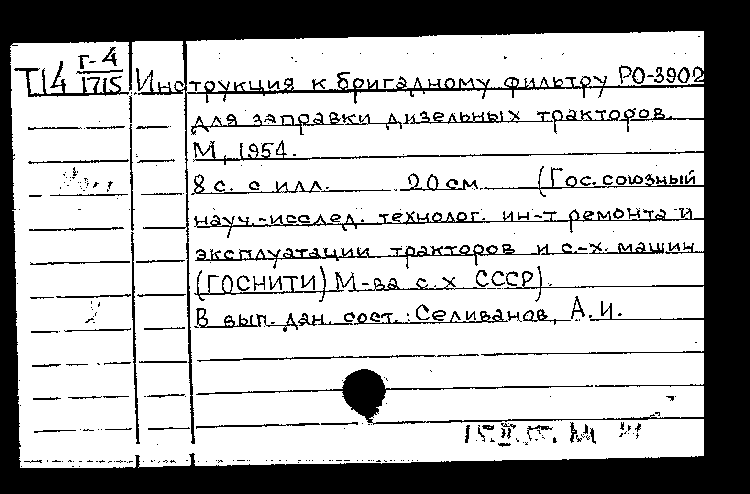 Т14 Г-4/1715 Инструкция к бригадному фильтру РО-3902
для заправки дизельных тракторов.
М., 1954.
8 с. с илл. 20 см (Гос. союзный
науч.-исслед. технолог. ин-т ремонта и
эксплуатации тракторов и с.-х. машин
(ГОСНИТИ) М-ва с.х СССР).
В вып. дан. сост.: Селиванов, А.И.
15.II.55.